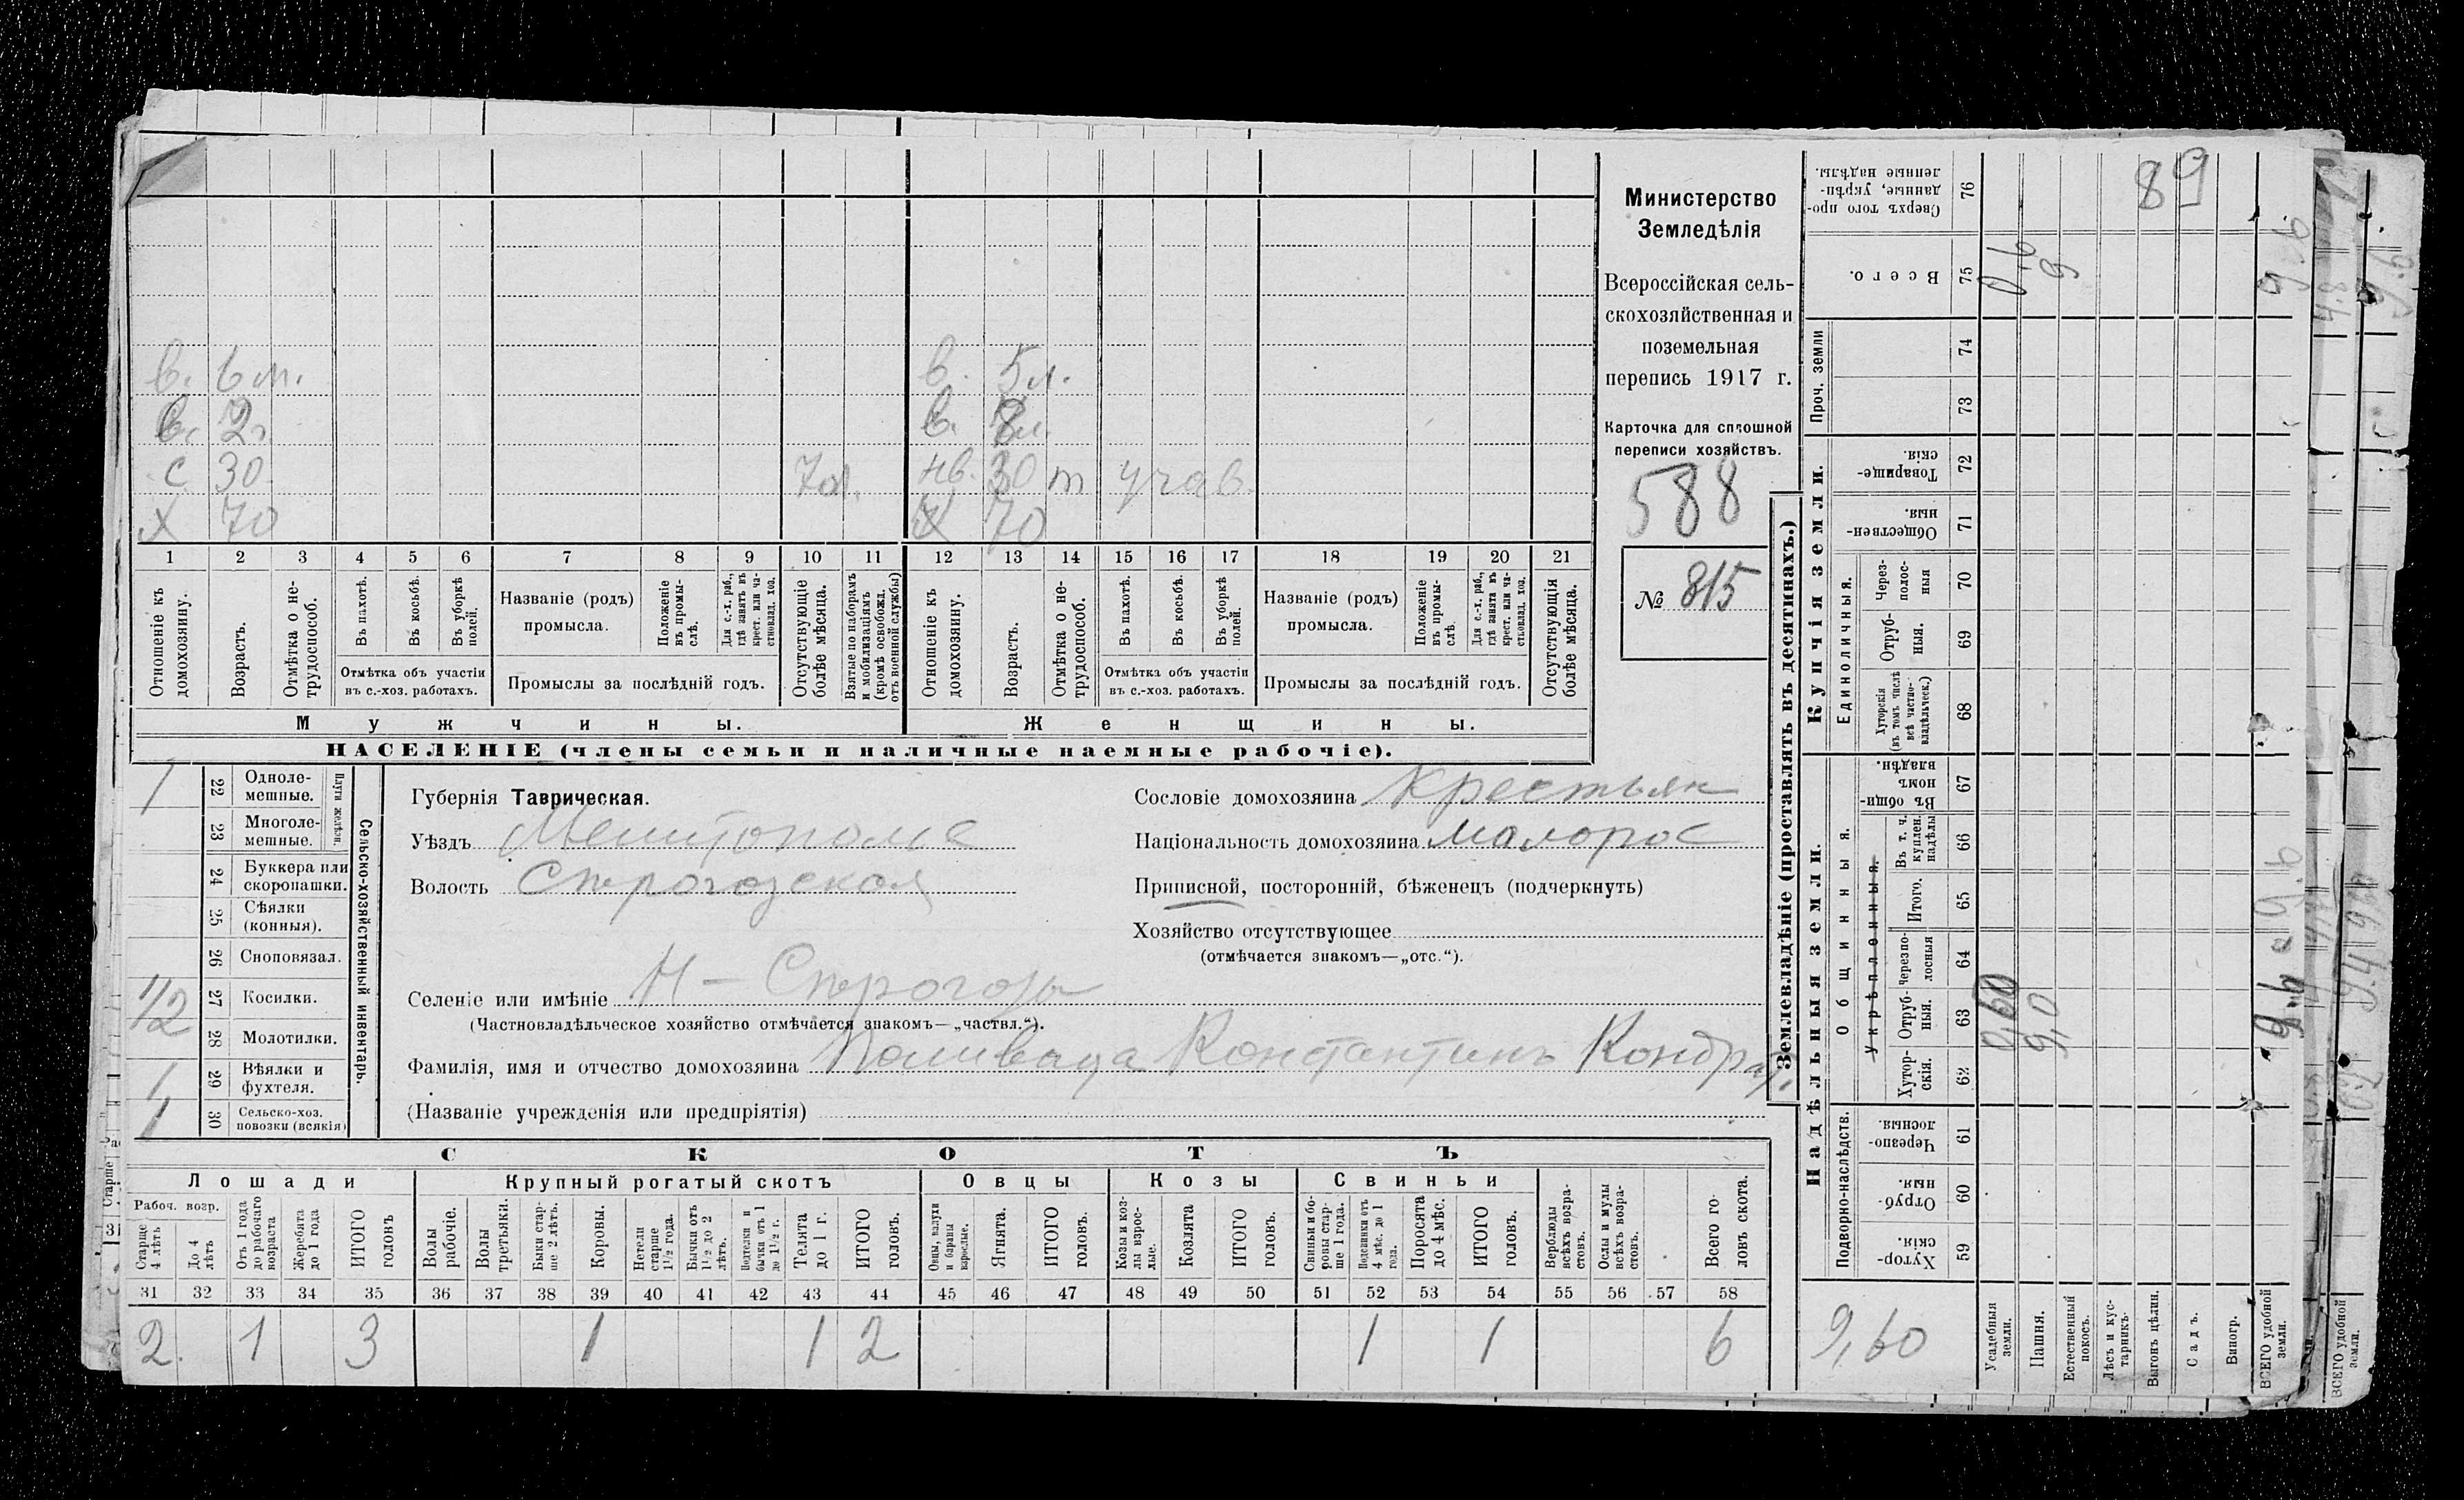 89
Министерство
Земледѣлія
Всероссійская сель-
скохозяйственная и
поземельная
перепись 1917 г.
Карточка для сплошной
переписи хозяйствъ.
588
№ 815
в. 6 м. в. 5 л.
в. 2 г. в. 8 л.
с 30 нв. 30 т
Х 70 Х 70
1 2 3 4 5 6 7 8 9 10 11 12 13 14 15 16 17 18 19 20 21
Отношеніе къ домохозяину.
Возрастъ.
Отмѣтка о не-трудоспособ.
Въ пахотѣ.
Въ косьбѣ.
Въ уборкѣ полей.
Отмѣтка объ участіи въ с.-хоз. работахъ.
Названіе (родъ) промысла.
Положеніе въ промы-слѣ.
Для с.-х. раб., гдѣ занятъ въ крест. или ча-стновлад. хоз.
Промыслы за послѣдній годъ.
Отсутствующіе болѣе мѣсяца.
Взятые по наборамъ и мобилизаціямъ (кромѣ освобожд. отъ военной службы)
Отношеніе къ домохозяину.
Возрастъ.
Отмѣтка о не-трудоспособ.
Въ пахотѣ.
Въ косьбѣ.
Въ уборкѣ полей.
Отмѣтка объ участіи въ с.-хоз. работахъ.
Названіе (родъ) промысла.
Положеніе въ промы-слѣ.
Для с.-х. раб., гдѣ занята въ крест. или ча-стновлад. хоз.
Промыслы за послѣдній годъ.
Отсутствующія болѣе мѣсяца.
Мужчины. Женщины.
НАСЕЛЕНІЕ (члены семьи и наличные наемные рабочіе).
Сельско-хозяйственный инвентарь.
Плуги желѣзн.
1 22 Одноле-мешные.
23 Многоле-мешные.
24 Буккера или скоропашки.
25 Сѣялки (конныя).
26 Сноповязал.
1/2 27 Косилки.
28 Молотилки.
1 29 Вѣялки и фухтеля.
1 30 Сельско-хоз. повозки (всякія)
Губернія Таврическая.
Уѣздъ Мелитополь
Волость
Селеніе или имѣніе
(Частновладѣльческое хозяйство отмѣчается знакомъ—„частвл.“).
Фамилія, имя и отчество домохозяина Поливода Константинъ Кондрат.
(Названіе учрежденія или предпріятія)
Сословіе домохозяина крестьян
Національность домохозяина малорос
Приписной, посторонній, бѣженецъ (подчеркнуть)
Хозяйство отсутствующее
(отмѣчается знакомъ—„отс.“).
СКОТЪ
Лошади Крупный рогатый скотъ Овцы Козы Свиньи
Рабоч. возр.
Старше 4 лѣтъ
До 4 лѣтъ
Отъ 1 года до рабочаго возраста
Жеребята до 1 года
ИТОГО головъ
Волы рабочіе.
Волы третьяки.
Быки стар-ше 2 лѣтъ.
Коровы.
Нетели старше 1½ года.
Бычки отъ 1½ до 2 лѣтъ.
Подтелки и бычки отъ 1 до 1½ г.
Телята до 1 г.
ИТОГО головъ.
Овцы, валухи и бараны взрослые.
Ягнята.
ИТОГО головъ.
Козы и коз-лы взрос-лые.
Козлята
ИТОГО головъ.
Свиньи и бо-ровы стар-ше 1 года.
Подсвинки отъ 4 мѣс. до 1 года.
Поросята до 4 мѣс.
ИТОГО головъ.
Верблюды всѣхъ возра-стовъ.
Ослы и мулы всѣхъ возра-стовъ.
Всего го-ловъ скота.
31 32 33 34 35 36 37 38 39 40 41 42 43 44 45 46 47 48 49 50 51 52 53 54 55 56 57 58
2 1 3 1 1 2 1 1 6
Землевладѣніе (проставлять въ десятинахъ.)
Купчія земли.
Надѣльныя земли.
Сверхъ того про-данные, укрѣп-ленные надѣлы. 76
Всего. 75 0,6 9
Проч. земли 74 73
Товарище-скія. 72
Обществен-ныя. 71
Единоличныя.
Через-полос-ныя 70
Отруб-ныя. 69
Хуторскія (въ томъ числѣ всѣ частно-владѣльческ.) 68
Общинныя.
Въ общи-номъ владѣн. 67
Укрѣпленныя.
Въ т. ч. куплен. надѣлы 66
Итого. 65
Черезпо-лосныя 64
Отруб-ныя. 63 0,60 9,0
Хутор-скія. 62
Подворно-наслѣдств.
Черезпо-лосныя. 61
Отруб-ныя. 60
Хутор-скія. 59
9,60
Усадебныя земли.
Пашня.
Естественный покосъ.
Лѣсъ и кус-тарникъ.
Выгонъ цѣлин.
Садъ.
Виногр.
ВСЕГО удобной земли.
ВСЕГО удобной земли.